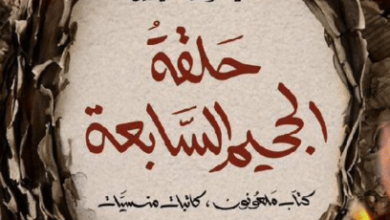 حَلقةُ
الجحيم السَّابعة
كتّاب ملعونون، كاتبات منسيَّات